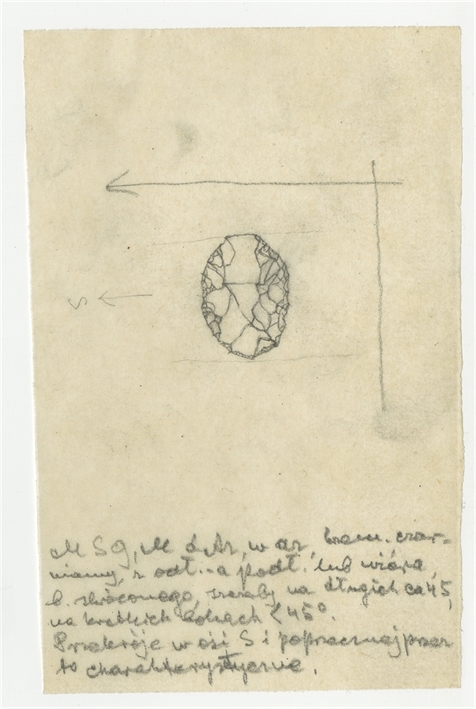 S
M Sg, M Ł Ar, w ar, krzem. czar-
niawy, z odł. a podł. lub wióra
b. skróconego, zaraby na długich ca 45,
na krótkich bokach < 45°.
Przekróje w osi S i poprzecznej przez
to charakterystyczne.